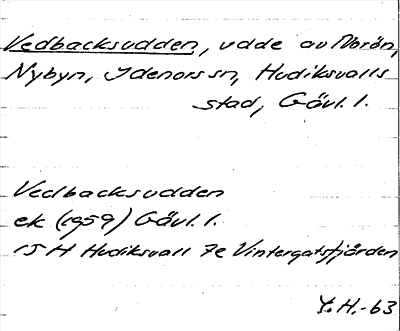 Vedbacksudden, udde av Norön,
Nybyn, Idenors sn, Hudiksvalls
stad, Gävl. l.
Vedbacksudden
ek (1959) Gävl. l.
15 H Hudiksvall 7e Vintergatsfjärden
Y. H. -63